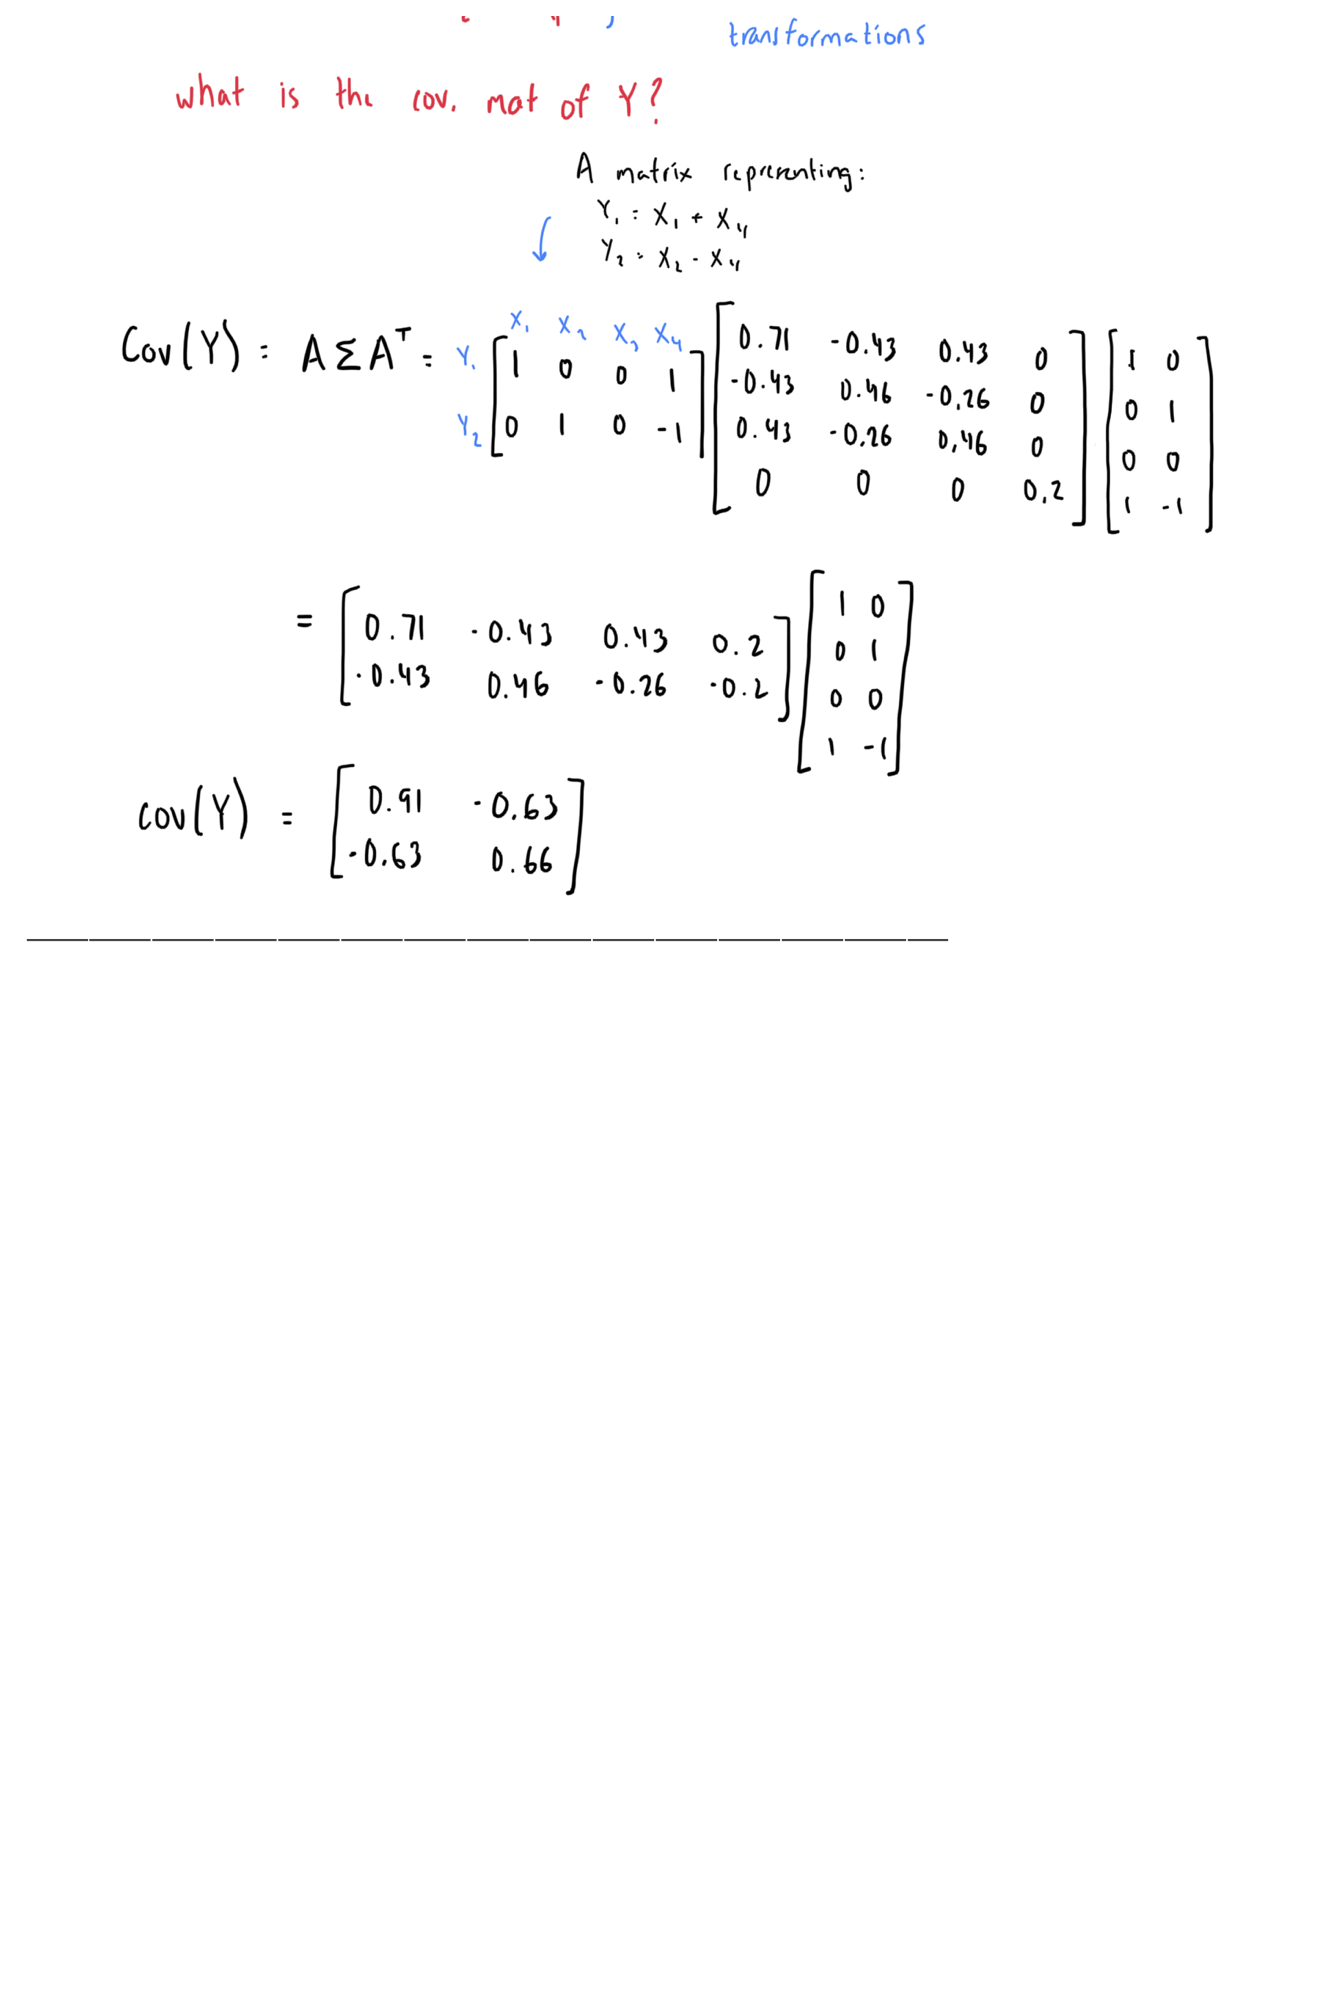 transformations
what is the cov. mat of Y?
A matrix representing:
Y₁ = X₁ + X₄
Y₂ = X₂ - X₄
X₁ X₂ X₃ X₄
Cov(Y) = A Σ Aᵀ = Y₁ Y₂ [1 0 0 1; 0 1 0 -1] [0.71 -0.43 0.43 0; -0.43 0.46 -0.26 0; 0.43 -0.26 0.46 0; 0 0 0 0.2] [1 0; 0 1; 0 0; 1 -1]
= [0.71 -0.43 0.43 0.2; -0.43 0.46 -0.26 -0.2] [1 0; 0 1; 0 0; 1 -1]
cov(Y) = [0.91 -0.63; -0.63 0.66]